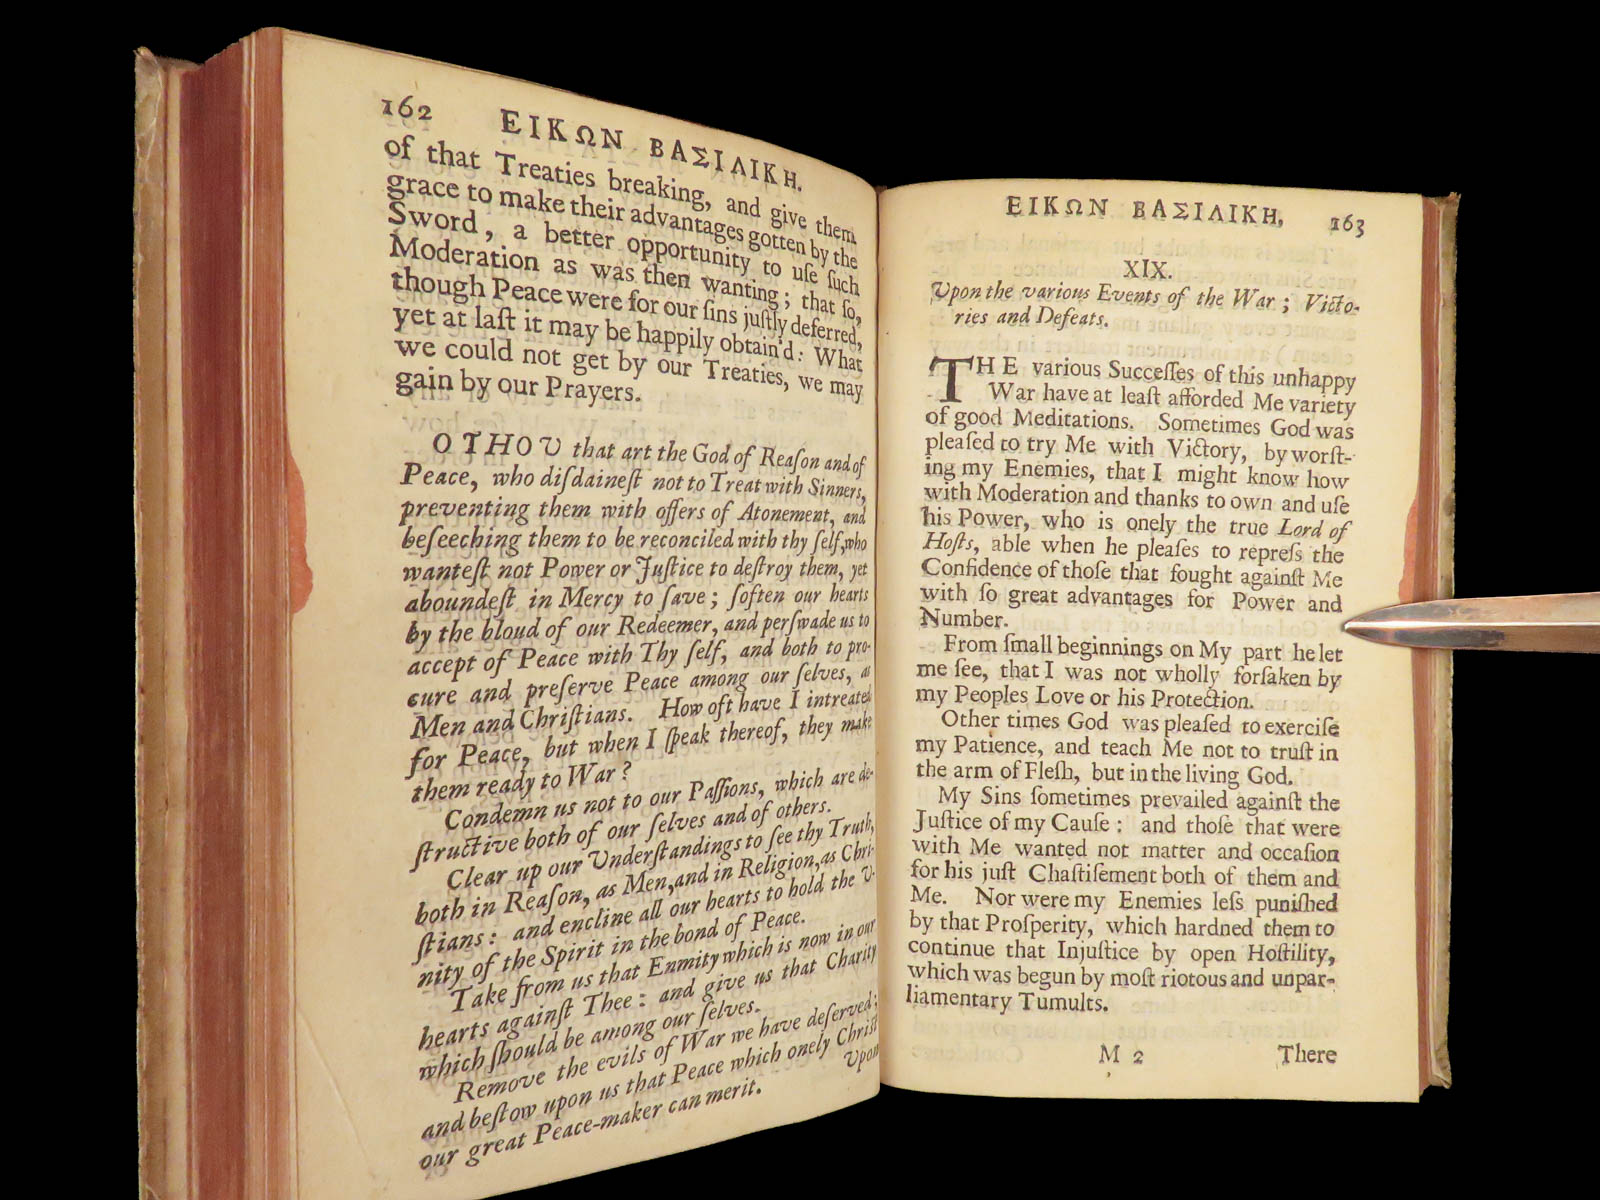 162 ΕΙΚΩΝ ΒΑΣΙΛΙΚΗ.
of that Treaties breaking, and give them
grace to make their advantages gotten by the
Sword, a better opportunity to uſe ſuch
Moderation as was then wanting; that ſo,
though Peace were for our ſins juſtly deferred,
yet at laſt it may be happily obtain'd: What
we could not get by our Treaties, we may
gain by our Prayers.
O THOU that art the God of Reaſon and of
Peace, who diſdaineſt not to Treat with Sinners,
preventing them with offers of Atonement, and
beſeeching them to be reconciled with thy ſelf, who
wanteſt not Power or Juſtice to deſtroy them, yet
aboundeſt in Mercy to ſave; ſoften our hearts
by the bloud of our Redeemer, and perſwade us to
accept of Peace with Thy ſelf, and both to pro-
cure and preſerve Peace among our ſelves, as
Men and Chriſtians. How oft have I intreated
for Peace, but when I ſpeak thereof, they make
them ready to War?
Condemn us not to our Paſſions, which are de-
ſtructive both of our ſelves and of others.
Clear up our Underſtandings to ſee thy Truth,
both in Reaſon, as Men, and in Religion, as Chri-
ſtians: and encline all our hearts to hold the U-
nity of the Spirit in the bond of Peace.
Take from us that Enmity which is now in our
hearts againſt Thee: and give us that Charity
which ſhould be among our ſelves.
Remove the evils of War we have deſerved;
and beſtow upon us that Peace which onely Chriſt
our great Peace-maker can merit.
Upon
ΕΙΚΩΝ ΒΑΣΙΛΙΚΗ. 163
XIX.
Upon the various Events of the War; Victo-
ries and Defeats.
THE various Succeſſes of this unhappy
War have at leaſt afforded Me variety
of good Meditations. Sometimes God was
pleaſed to try Me with Victory, by worſt-
ing my Enemies, that I might know how
with Moderation and thanks to own and uſe
his Power, who is onely the true Lord of
Hoſts, able when he pleaſes to repreſs the
Confidence of thoſe that fought againſt Me
with ſo great advantages for Power and
Number.
From ſmall beginnings on My part he let
me ſee, that I was not wholly forſaken by
my Peoples Love or his Protection.
Other times God was pleaſed to exerciſe
my Patience, and teach Me not to truſt in
the arm of Fleſh, but in the living God.
My Sins ſometimes prevailed againſt the
Juſtice of my Cauſe: and thoſe that were
with Me wanted not matter and occaſion
for his juſt Chaſtiſement both of them and
Me. Nor were my Enemies leſs puniſhed
by that Proſperity, which hardned them to
continue that Injuſtice by open Hoſtility,
which was begun by moſt riotous and unpar-
liamentary Tumults.
M 2 There